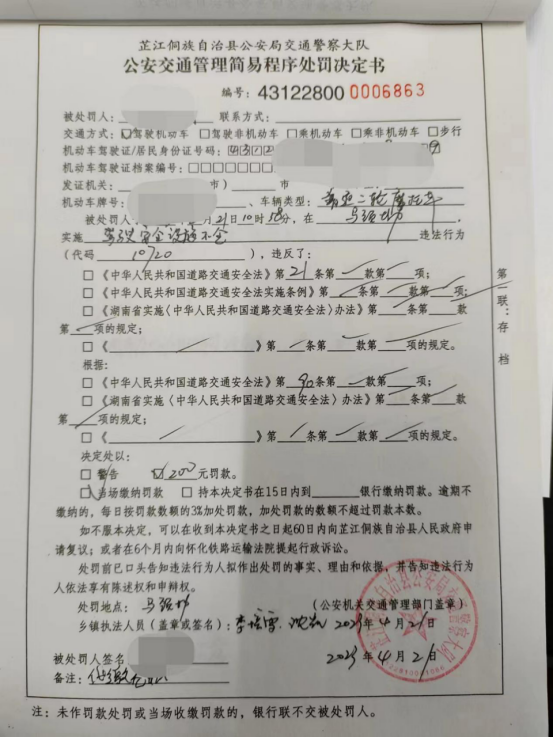 芷江侗族自治县公安局交通警察大队
公安交通管理简易程序处罚决定书
编号：43122800 0006863
被处罚人： 联系方式：
交通方式：☑驾驶机动车 □驾驶非机动车 □乘机动车 □乘非机动车 □步行
机动车驾驶证/居民身份证号码：4312 9
机动车驾驶证档案编号：□□□□□□
发证机关： 市） 市
机动车牌号： 、车辆类型：普通二轮摩托车
被处罚人 月21日10时 分，在
实施 驾驶安全设施不全 违法行为
（代码 10720 ），违反了：
□《中华人民共和国道路交通安全法》第21条第 款第 项；
□《中华人民共和国道路交通安全法实施条例》第 条第 款第 项；
□《湖南省实施〈中华人民共和国道路交通安全法〉办法》第 条第 款
第 项的规定；
□《 》第 条第 款第 项的规定。
根据：
□《中华人民共和国道路交通安全法》第90条第 款第 项；
□《湖南省实施〈中华人民共和国道路交通安全法〉办法》第 条第 款
第 项的规定；
□《 》第 条第 款第 项的规定。
决定处以：
□警告 ☑200元罚款。
□当场缴纳罚款 □持本决定书在15日内到 银行缴纳罚款。逾期不
缴纳的，每日按罚款数额的3%加处罚款，加处罚款的数额不超过罚款本数。
如不服本决定，可以在收到本决定书之日起60日内向芷江侗族自治县人民政府申
请复议；或者在6个月内向怀化铁路运输法院提起行政诉讼。
处罚前已口头告知违法行为人拟作出处罚的事实、理由和依据，并告知违法行为
人依法享有陈述权和申辩权。
处罚地点： （公安机关交通管理部门盖章）
乡镇执法人员（盖章或签名）： 2023年4月21日
被处罚人签名 2023年4月21日
备注：
第一联：存档
注：未作罚款处罚或当场收缴罚款的，银行联不交被处罚人。